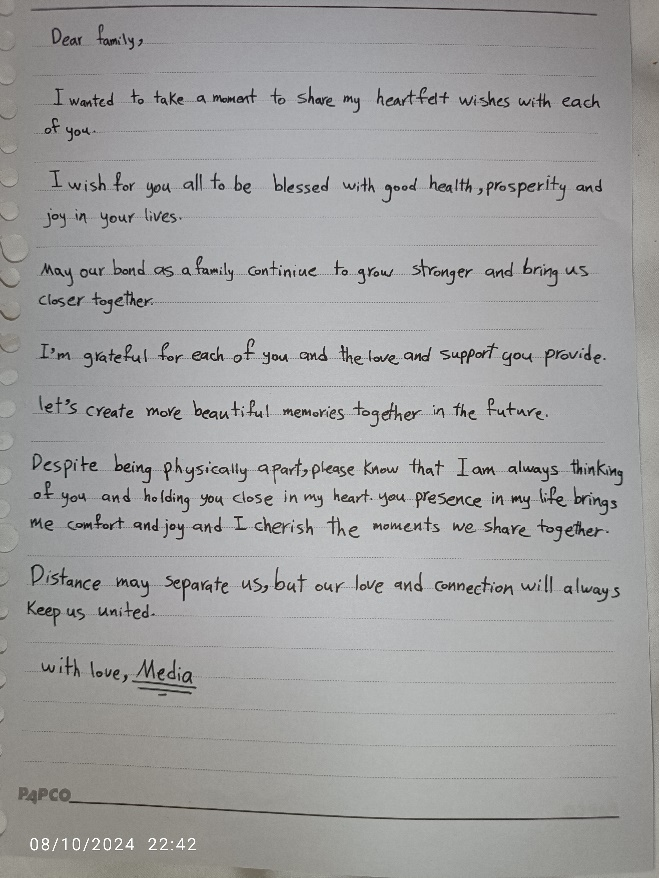 Dear family,
I wanted to take a moment to share my heartfelt wishes with each
of you.
I wish for you all to be blessed with good health, prosperity and
joy in your lives.
May our bond as a family continiue to grow stronger and bring us
closer together.
I'm grateful for each of you and the love and support you provide.
let's create more beautiful memories together in the future.
Despite being physically apart, please know that I am always thinking
of you and holding you close in my heart. you presence in my life brings
me comfort and joy and I cherish the moments we share together.
Distance may separate us, but our love and connection will always
Keep us united.
with love, Media
PAPCO
08/10/2024 22:42